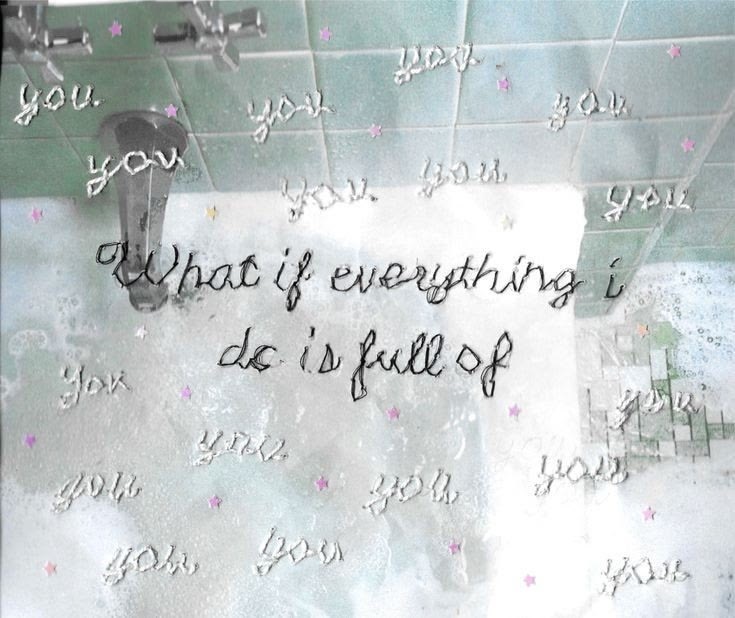 you
you. you you
you you you you
What if everything i
do is full of
you you
you you
you you
you you you